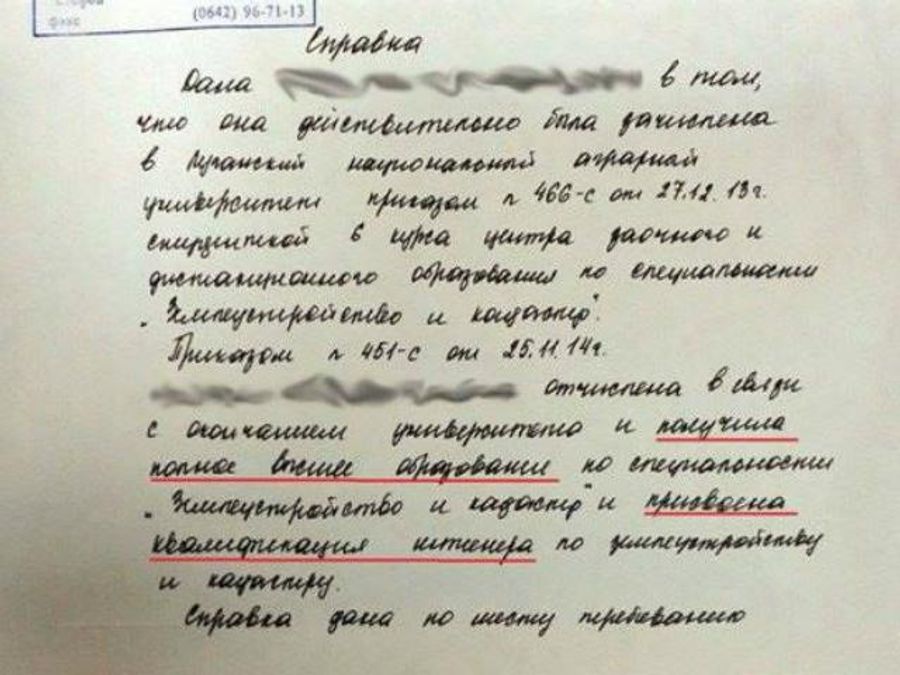 факс (0642) 96-71-13
Справка
Дана в том,
что она действительно была зачислена
в Луганский национальный аграрной
университет приказом № 466-с от 27.12.13г.
студенткой 6 курса центра заочного и
дистанционного образования по специальности
„Землеустройство и кадастр".
Приказом № 451-с от 25.11.14г.
отчислена в связи
с окончанием университета и получила
полное высшее образование по специальности
„Землеустройство и кадастр" и присвоена
квалификация инженера по землеустройству
и кадастру.
Справка дана по месту пребыванию